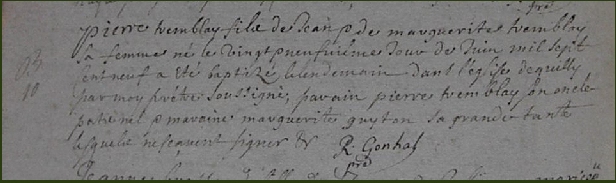 prê
pierre tremblay fils de Jean & de marguerites tremblay
sa femme né le vingt neufvième Jour de Juin mil sept
cent neuf a été baptizé le lendemain dans l'eglise
par moy prêtre soussigné, parain pierre tremblay son oncle
paternel & maraine marguerites guyton sa grande tante
lesquels ne sçavent signer &
R. Gonhal
prê
Jeanne